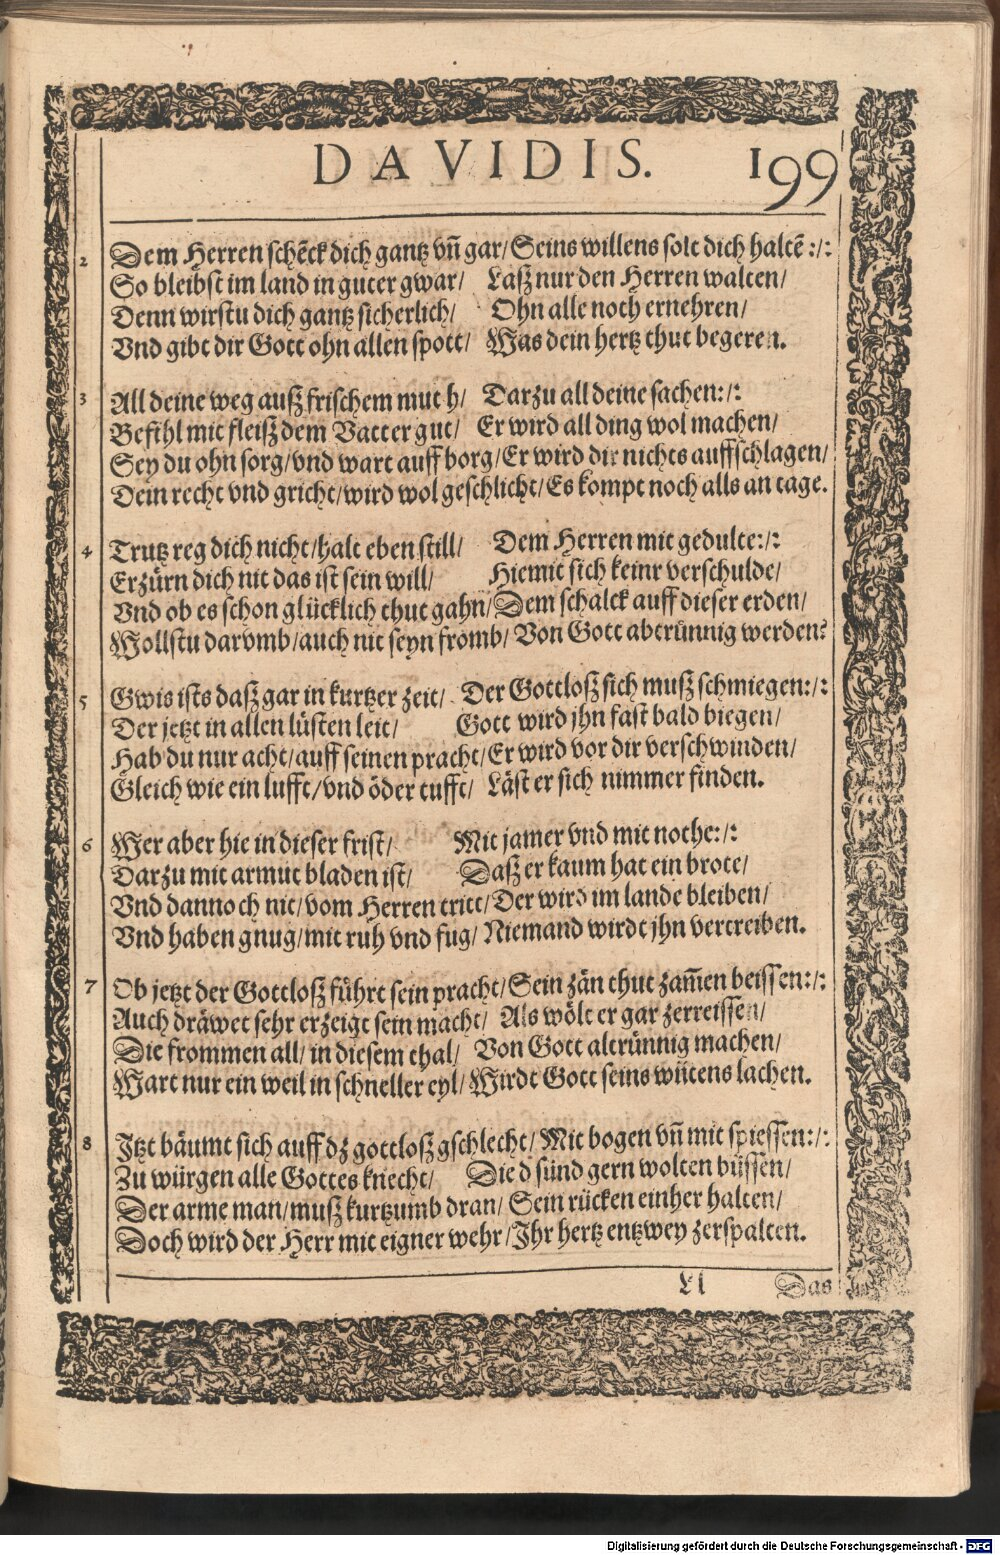 DAVIDIS. 199
2 Dem Herren schēck dich gantz vn̄ gar/ Seins willens solt dich haltē :/:
So bleibst im land in guter gwar/ Laß nur den Herren walten/
Denn wirstu dich gantz sicherlich/ Ohn alle noth ernehren/
Vnd gibt dir Gott ohn allen spott/ Was dein hertz thut begeren.
3 All deine weg auß frischem muth/ Darzu all deine sachen:/:
Befihl mit fleiß dem Vatter gut/ Er wird all ding wol machen/
Sey du ohn sorg/ vnd wart auff borg/ Er wird dir nichts auffschlagen/
Dein recht vnd gricht/ wird wol geschlicht/ Es kompt noch alls an tage.
4 Trutz reg dich nicht/ halt eben still/ Dem Herren mit gedulte:/:
Erzürn dich nit das ist sein will/ Hiemit sich keinr verschulde/
Vnd ob es schon glücklich thut gahn/ Dem schalck auff dieser erden/
Wollstu darvmb/ auch nit seyn fromb/ Von Gott abtrünnig werden?
5 Gwis ists daß gar in kurtzer zeit/ Der Gottloß sich muß schmiegen:/:
Der jetzt in allen lüsten leit/ Gott wird jhn fast bald biegen/
Hab du nur acht/ auff seinen pracht/ Er wird vor dir verschwinden/
Gleich wie ein lufft/ vnd öder tufft/ Läst er sich nimmer finden.
6 Wer aber hie in dieser frist/ Mit jamer vnd mit nothe:/:
Darzu mit armut bladen ist/ Daß er kaum hat ein brote/
Vnd dannoch nit/ vom Herren tritt/ Der wird im lande bleiben/
Vnd haben gnug/ mit ruh vnd fug/ Niemand wirdt jhn vertreiben.
7 Ob jetzt der Gottloß führt sein pracht/ Sein zän thut zam̄en beissen:/:
Auch dräwet sehr erzeigt sein macht/ Als wölt er gar zerreissen/
Die frommen all/ in diesem thal/ Von Gott altrünnig machen/
Wart nur ein weil in schneller eyl/ Wirdt Gott seins wütens lachen.
8 Jtzt bäumt sich auff dz gottloß gschlecht/ Mit bogen vn̄ mit spiessen:/:
Zu würgen alle Gottes knecht/ Die d sünd gern wolten büssen/
Der arme man/ muß kurtzumb dran/ Sein rücken einher halten/
Doch wird der Herr mit eigner wehr/ Jhr hertz entzwey zerspalten.
Ll Das
Digitalisierung gefördert durch die Deutsche Forschungsgemeinschaft - DFG